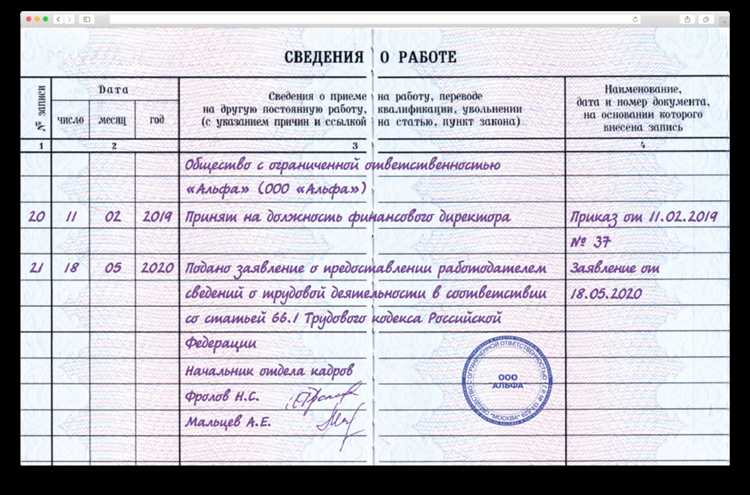 СВЕДЕНИЯ О РАБОТЕ
№ записи
Дата
Сведения о приеме на работу, переводе
на другую постоянную работу, квалификации, увольнении
(с указанием причин и ссылкой на статью, пункт закона)
Наименование,
дата и номер документа,
на основании которого
внесена запись
число месяц год
1 2 3 4
Общество с ограниченной ответственностью
«Альфа» (ООО «Альфа»)
20 11 02 2019 Принят на должность финансового директора Приказ от 11.02.2019
№ 37
21 18 05 2020 Подано заявление о предоставлении работодателем Заявление от
сведений о трудовой деятельности в соответствии 18.05.2020
со статьей 66.1 Трудового кодекса Российской
Федерации
Начальник отдела кадров
Фролов Н.С.
Мальцев А.Е.
ООО
АЛЬФА
"МОСКВА"